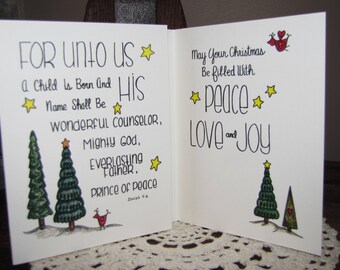 For unto us
A Child Is Born And His
Name Shall Be
Wonderful Counselor,
Mighty God,
Everlasting
Father,
Prince of Peace
Isaiah 9:6
May Your Christmas
Be Filled With
Peace
Love and Joy